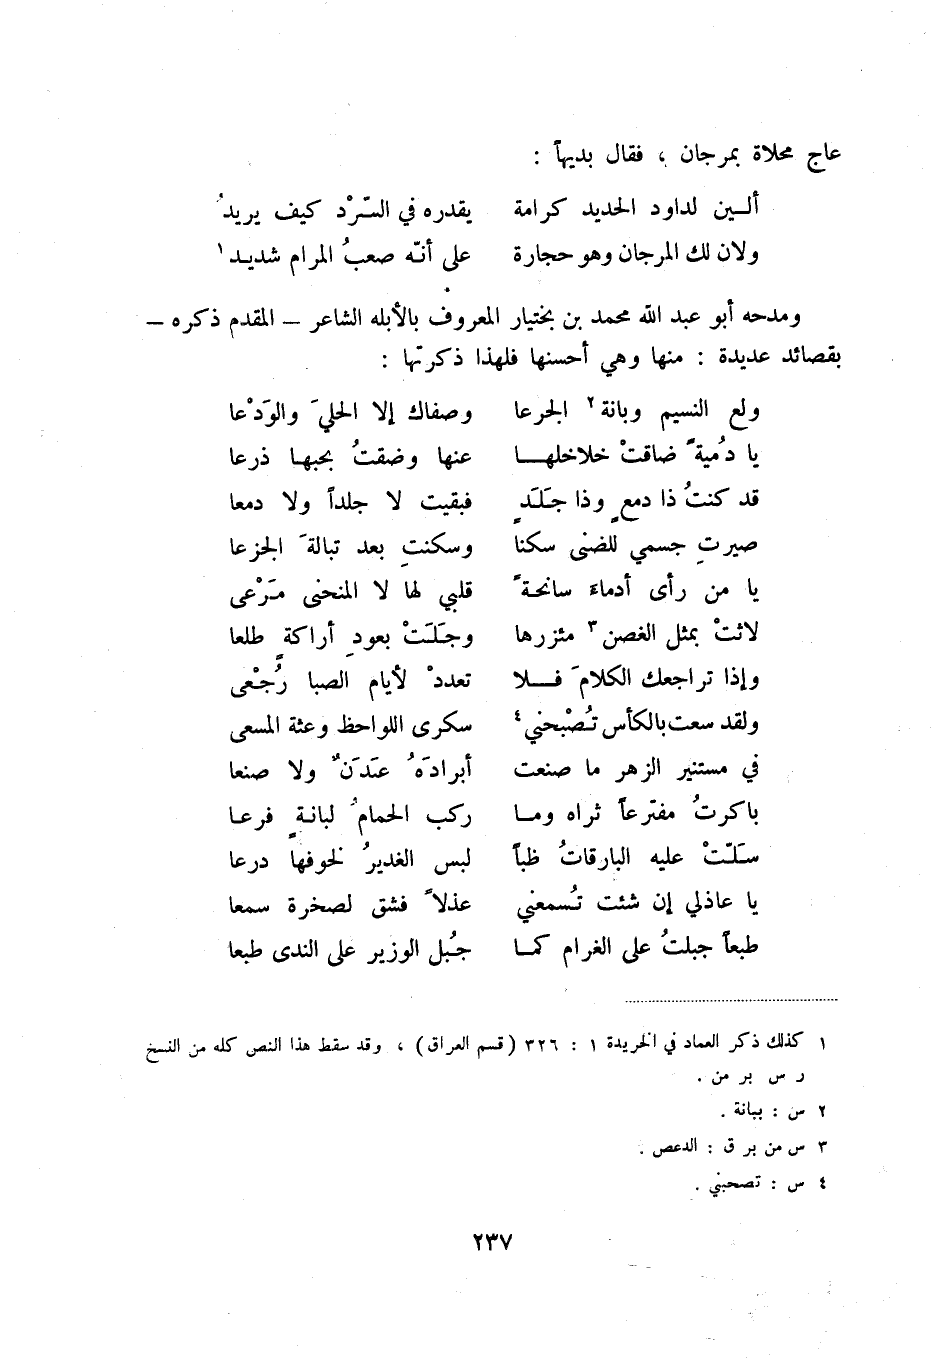 عاج محلاة بمرجان ، فقال بديهاً :
ألــين لداود الحديد كرامة يقدره في السّرْد كيف يريدُ
ولان لك المرجان وهو حجارة على أنّه صعبُ المرام شديد ١
ومدحه أبو عبد الله محمد بن بختيار المعروف بالأبله الشاعر ــ المقدم ذكره ــ
بقصائد عديدة : منها وهي أحسنها فلهذا ذكرتها :
ولع النسيم وبانة ٢ الجرعا وصفاك إلا الحليَ والوَدْعا
يا دُميةً ضاقتْ خلاخلهــا عنها وضقتُ بحبهـا ذرعا
قد كنتُ ذا دمعٍ وذا جَلَدٍ فبقيت لا جلداً ولا دمعا
صيرتِ جسمي للضنى سكنا وسكنتِ بعد تبالةَ الجزعا
يا من رأى أدماء سانحةً قلبي لها لا المنحنى مَرْعى
لاثتْ بمثل الغصن ٣ مئزرها وجَلَتْ بعودِ أراكةٍ طلعا
وإذا تراجعك الكلامَ فــلا تعددْ لأيام الصبا رُجْعى
ولقد سعت بالكأس تُصْبحني ٤ سكرى اللواحظ وعثة المسعى
في مستنير الزهر ما صنعت أبرادَهُ عَدَنٌ ولا صنعا
باكرتُ مفترعاً ثراه ومـا ركب الحمامُ لبانةٍ فرعـا
سَلّتْ عليه البارقاتُ ظباً لبس الغديرُ لخوفها درعا
يا عاذلي إن شئت تُسمعني عذلاً فشق لصخرة سمعا
طبعاً جبلتُ على الغرام كمـا جُبل الوزير على الندى طبعا
١ كذلك ذكر العماد في الخريدة ١ : ٣٢٦ (قسم العراق) ، وقد سقط هذا النص كله من النسخ
ر س بر من .
٢ س : ببانة .
٣ س من بر ق : الدعص .
٤ س : تصحبني .
٢٣٧